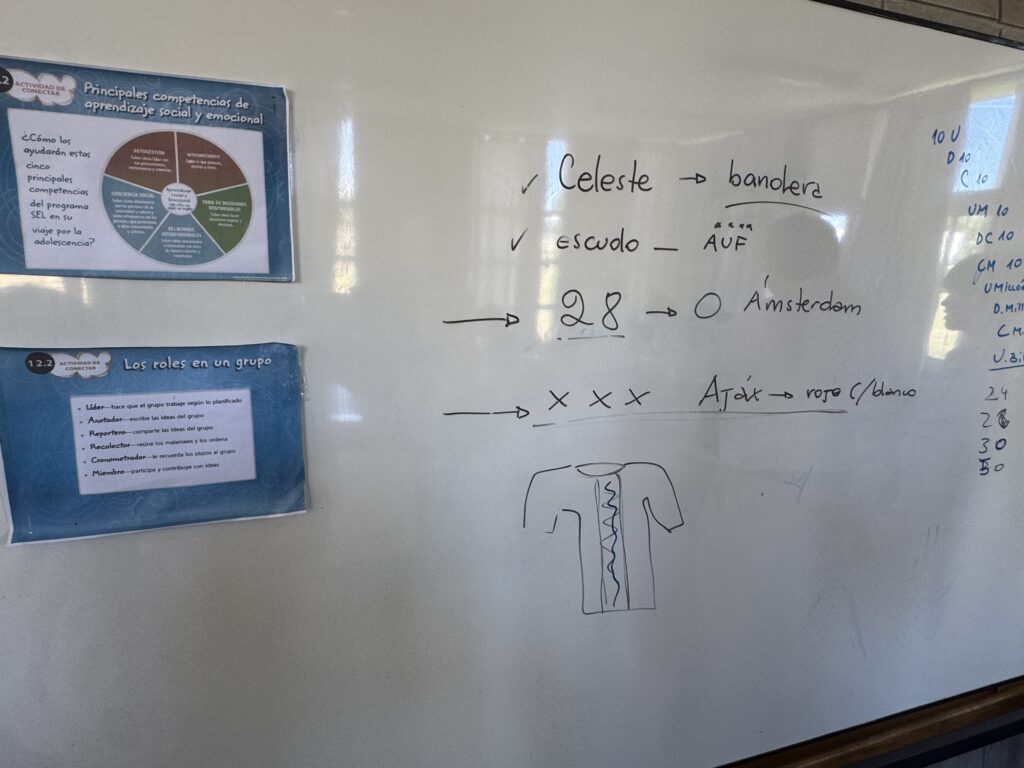 .2 ACTIVIDAD DE CONECTAR
Principales competencias de
aprendizaje social y emocional
¿Cómo los
ayudarán estas
cinco
principales
competencias
del programa
SEL en su
viaje por la
adolescencia?
AUTOGESTIÓN
AUTOCONOCIMIENTO
CONCIENCIA SOCIAL
TOMA DE DECISIONES
RESPONSABLES
RELACIONES
INTERPERSONALES
Aprendizaje
Social y
Emocional
12.2 ACTIVIDAD DE CONECTAR
Los roles en un grupo
• Líder—hace que el grupo trabaje según lo planificado
• Anotador—escribe las ideas del grupo
• Reportero—comparte las ideas del grupo
• Recolector—reúne los materiales y los ordena
• Cronometrador—le recuerda los plazos al grupo
• Miembro—participa y contribuye con ideas
✓ Celeste → bandera
✓ escudo — AUF
→ 28 → O Ámsterdam
→ x x x Ajáx → rojo c/blanco
10 U
D 10
C 10
UM 10
DC 10
CM 10
D. Mill
C M
U. Bi
24
28
30
50